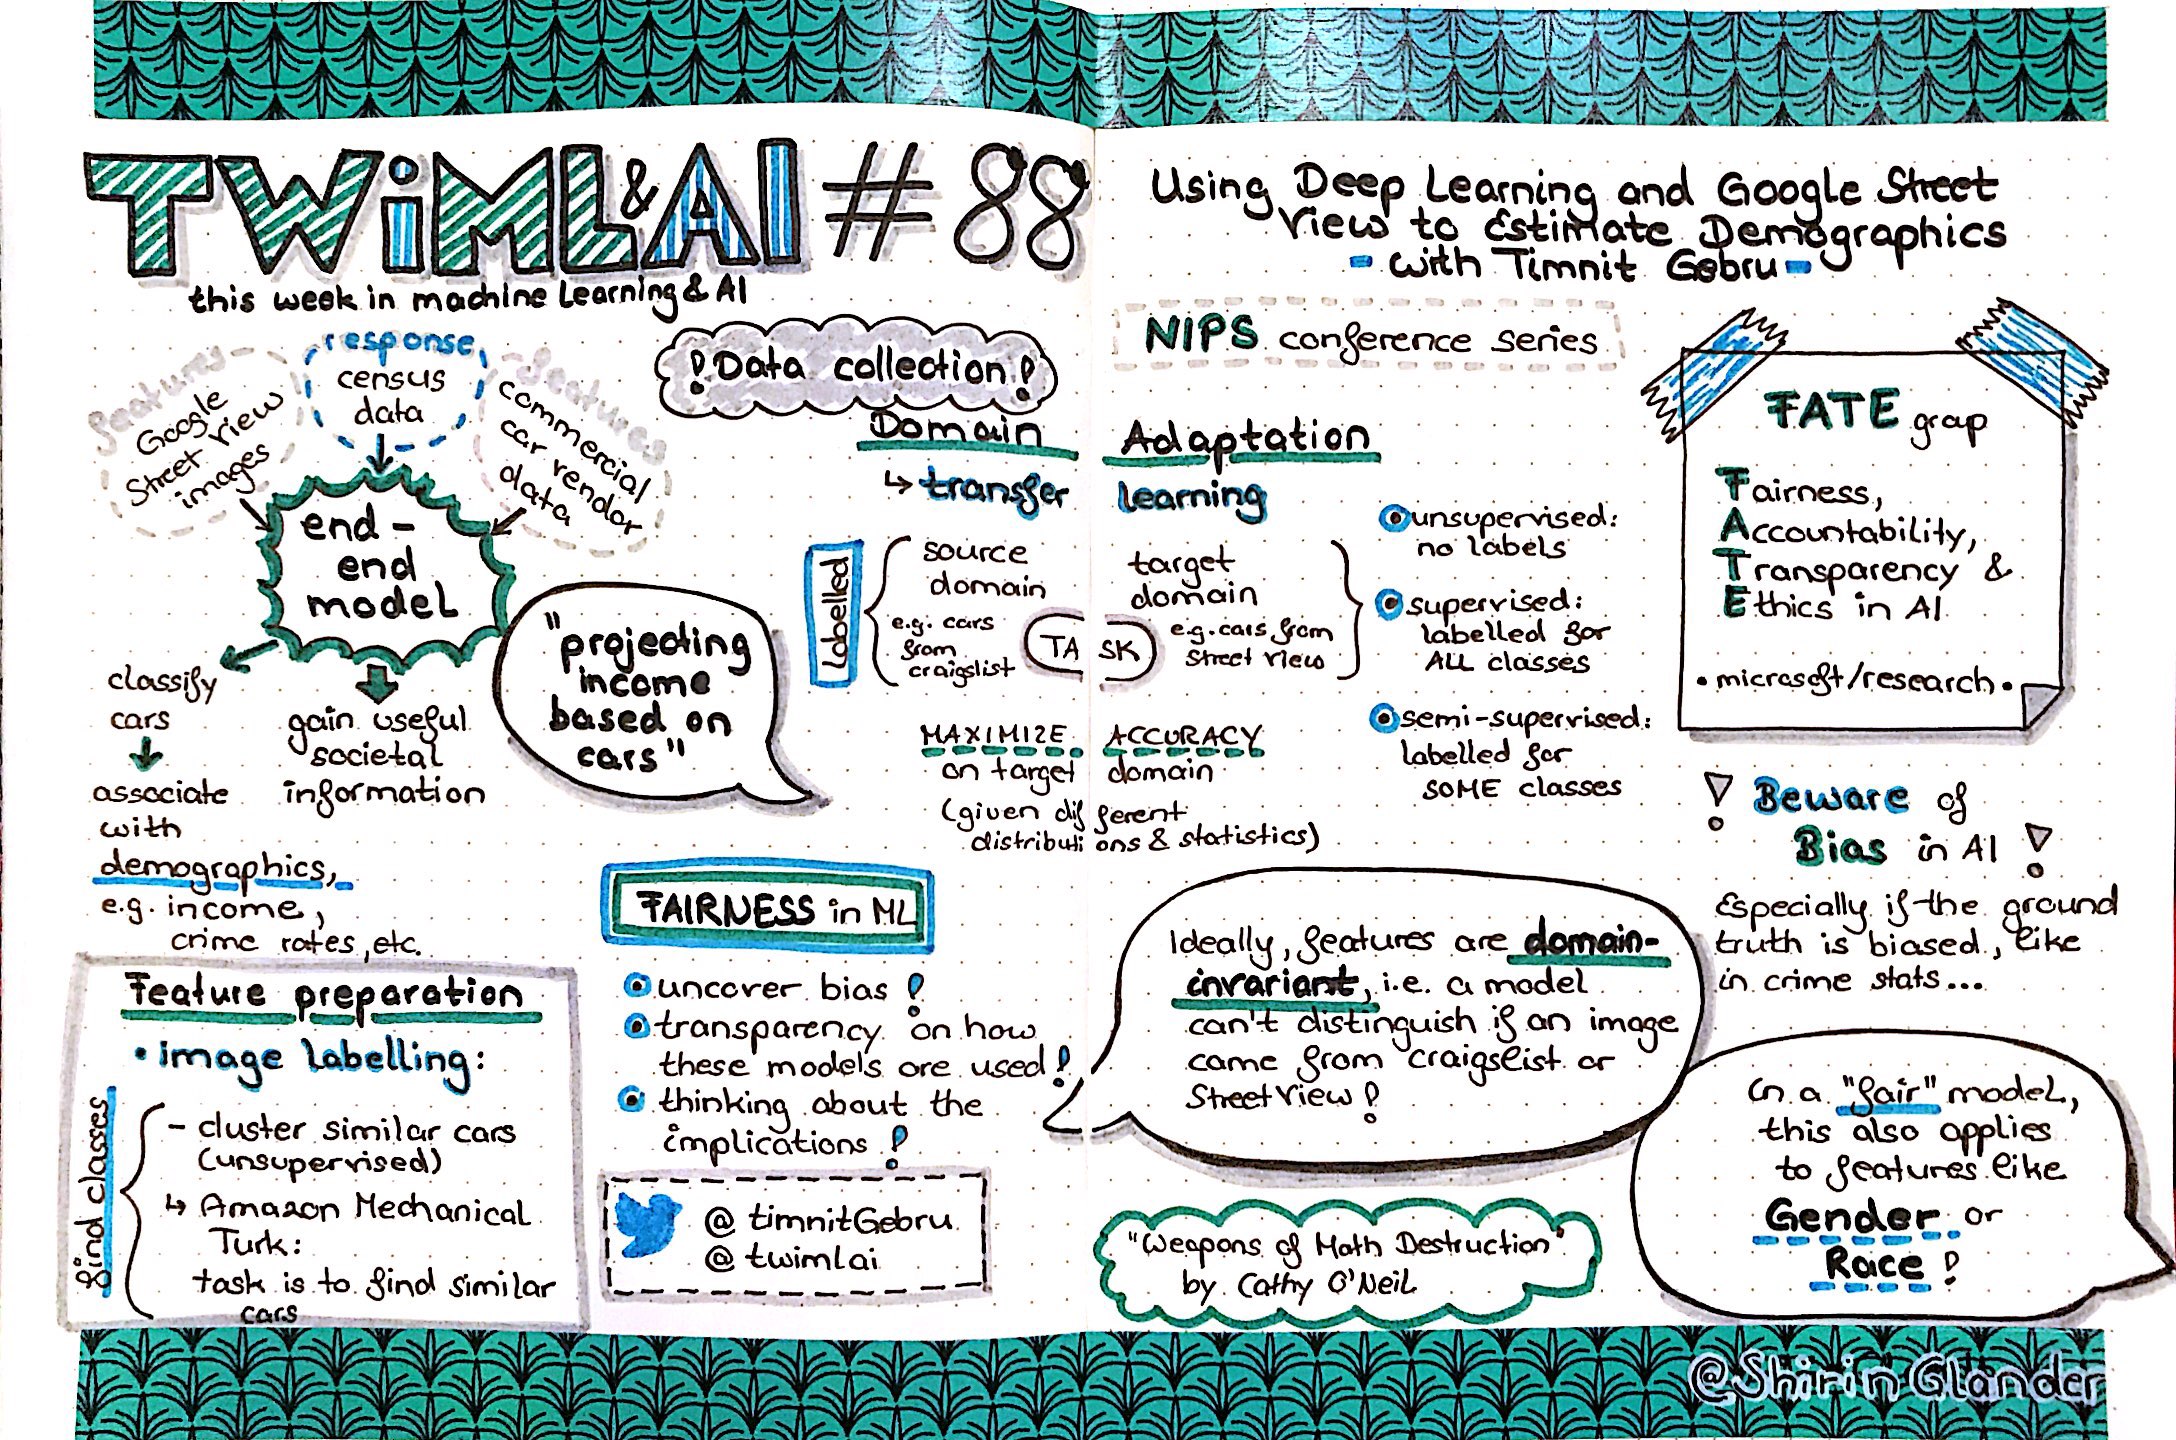 TWiML&AI # 88
this week in machine Learning & AI
Using Deep Learning and Google Street
View to Estimate Demographics
- with Timnit Gebru -
NIPS conference series
features
Google
Street View
images
response
census
data
features
commercial
car vendor
data
end-
end
model
classify
cars
associate
with
demographics,
e.g. income,
crime rates, etc.
gain useful
societal
information
"projecting
income
based on
cars"
! Data collection !
Domain Adaptation
↳ transfer learning
labelled
source
domain
e.g. cars
from
craigslist
TASK
target
domain
e.g. cars from
Street View
MAXIMIZE ACCURACY
on target domain
(given different
distributions & statistics)
unsupervised:
no labels
supervised:
labelled for
ALL classes
semi-supervised:
labelled for
SOME classes
FATE group
Fairness,
Accountability,
Transparency &
Ethics in AI
• microsoft/research •
! Beware of
Bias in AI !
Especially if the ground
truth is biased, like
in crime stats...
Feature preparation
• image labelling:
find classes
- cluster similar cars
(unsupervised)
↳ Amazon Mechanical
Turk:
task is to find similar
cars
FAIRNESS in ML
uncover bias !
transparency on how
these models are used !
thinking about the
implications !
@timnitGebru
@twimlai
Ideally, features are domain-
invariant, i.e. a model
can't distinguish if an image
came from craigslist or
Street View !
In a "fair" model,
this also applies
to features like
Gender or
Race !
"Weapons of Math Destruction"
by Cathy O'Neil
@Shirin Glander